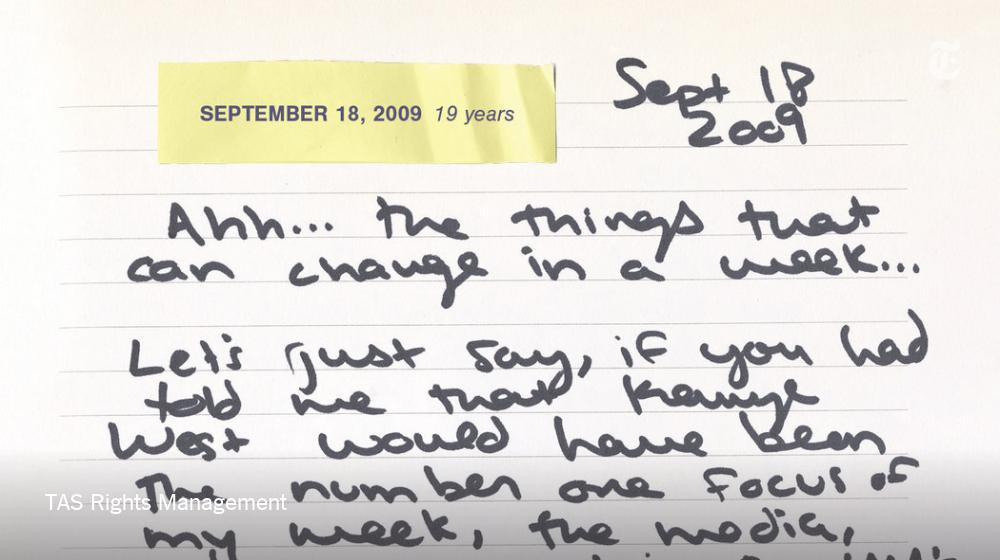 SEPTEMBER 18, 2009 19 years
Sept 18
2009
Ahh... the things that
can change in a week...
Let's just say, if you had
told me that Kanye
West would have been
The number one focus of
my week, the media,
TAS Rights Management